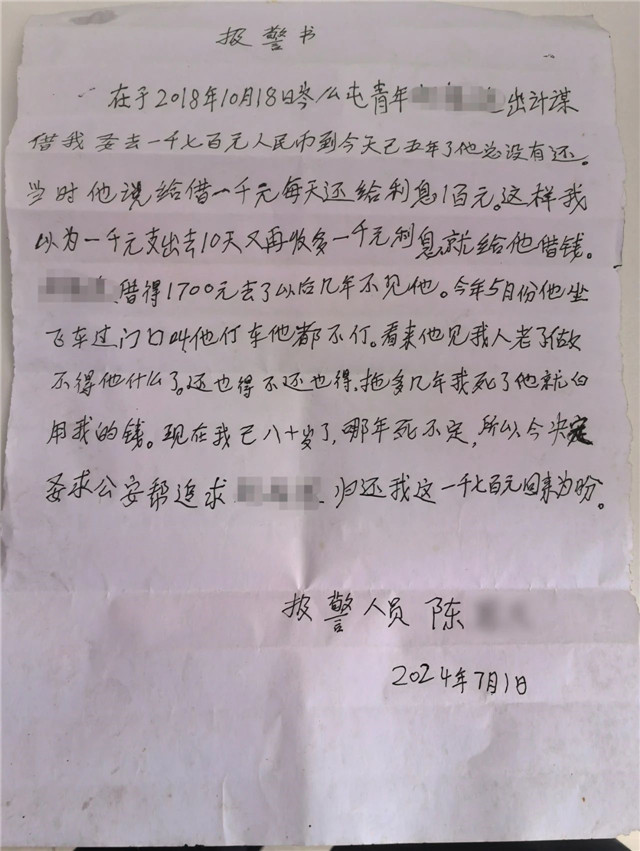 报警书
在于2018年10月18日岑么屯青年 出计谋
借我要去一千七百元人民币到今天已五年了他总没有还。
当时他说给借一千元每天还给利息1百元。这样我
以为一千元支出去10天又再收多一千元利息就给他借钱。
借得1700元去了以后几年不见他。今年5月份他坐
飞车过门口叫他仃车他都不仃。看来他见我人老了做
不得他什么了。还也得不还也得,拖多几年我死了他就白
用我的钱。现在我已八十岁了,哪年死不定,所以今决定
要求公安帮追求 归还我这一千七百元回来为盼。
报警人员 陈
2024年7月1日